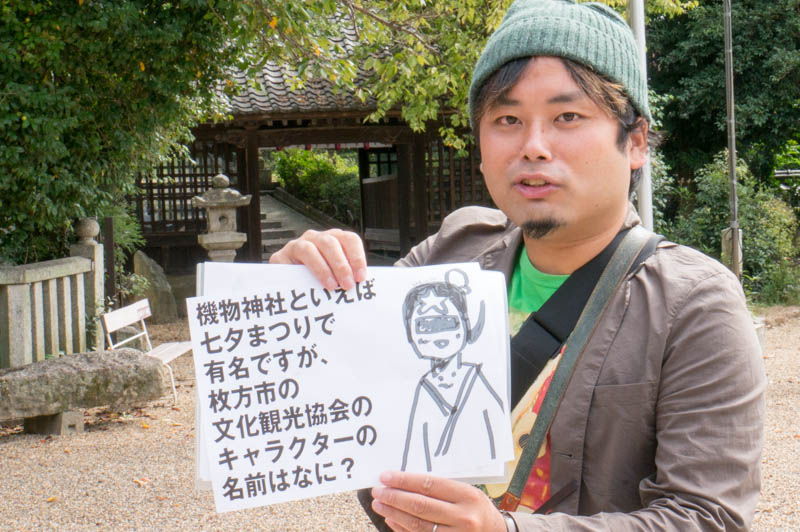 機物神社といえば
七夕まつりで
有名ですが、
枚方市の
文化観光協会の
キャラクターの
名前はなに？